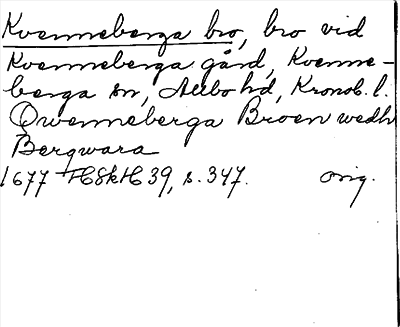 Kvenneberga bro, bro vid
Kvenneberga gård, Kvenne-
berga sn, Allbo hd, Kronob. l.
Qwenneberga Broen wedh
Bergwara
1677 HSkH 39, s. 347. orig.